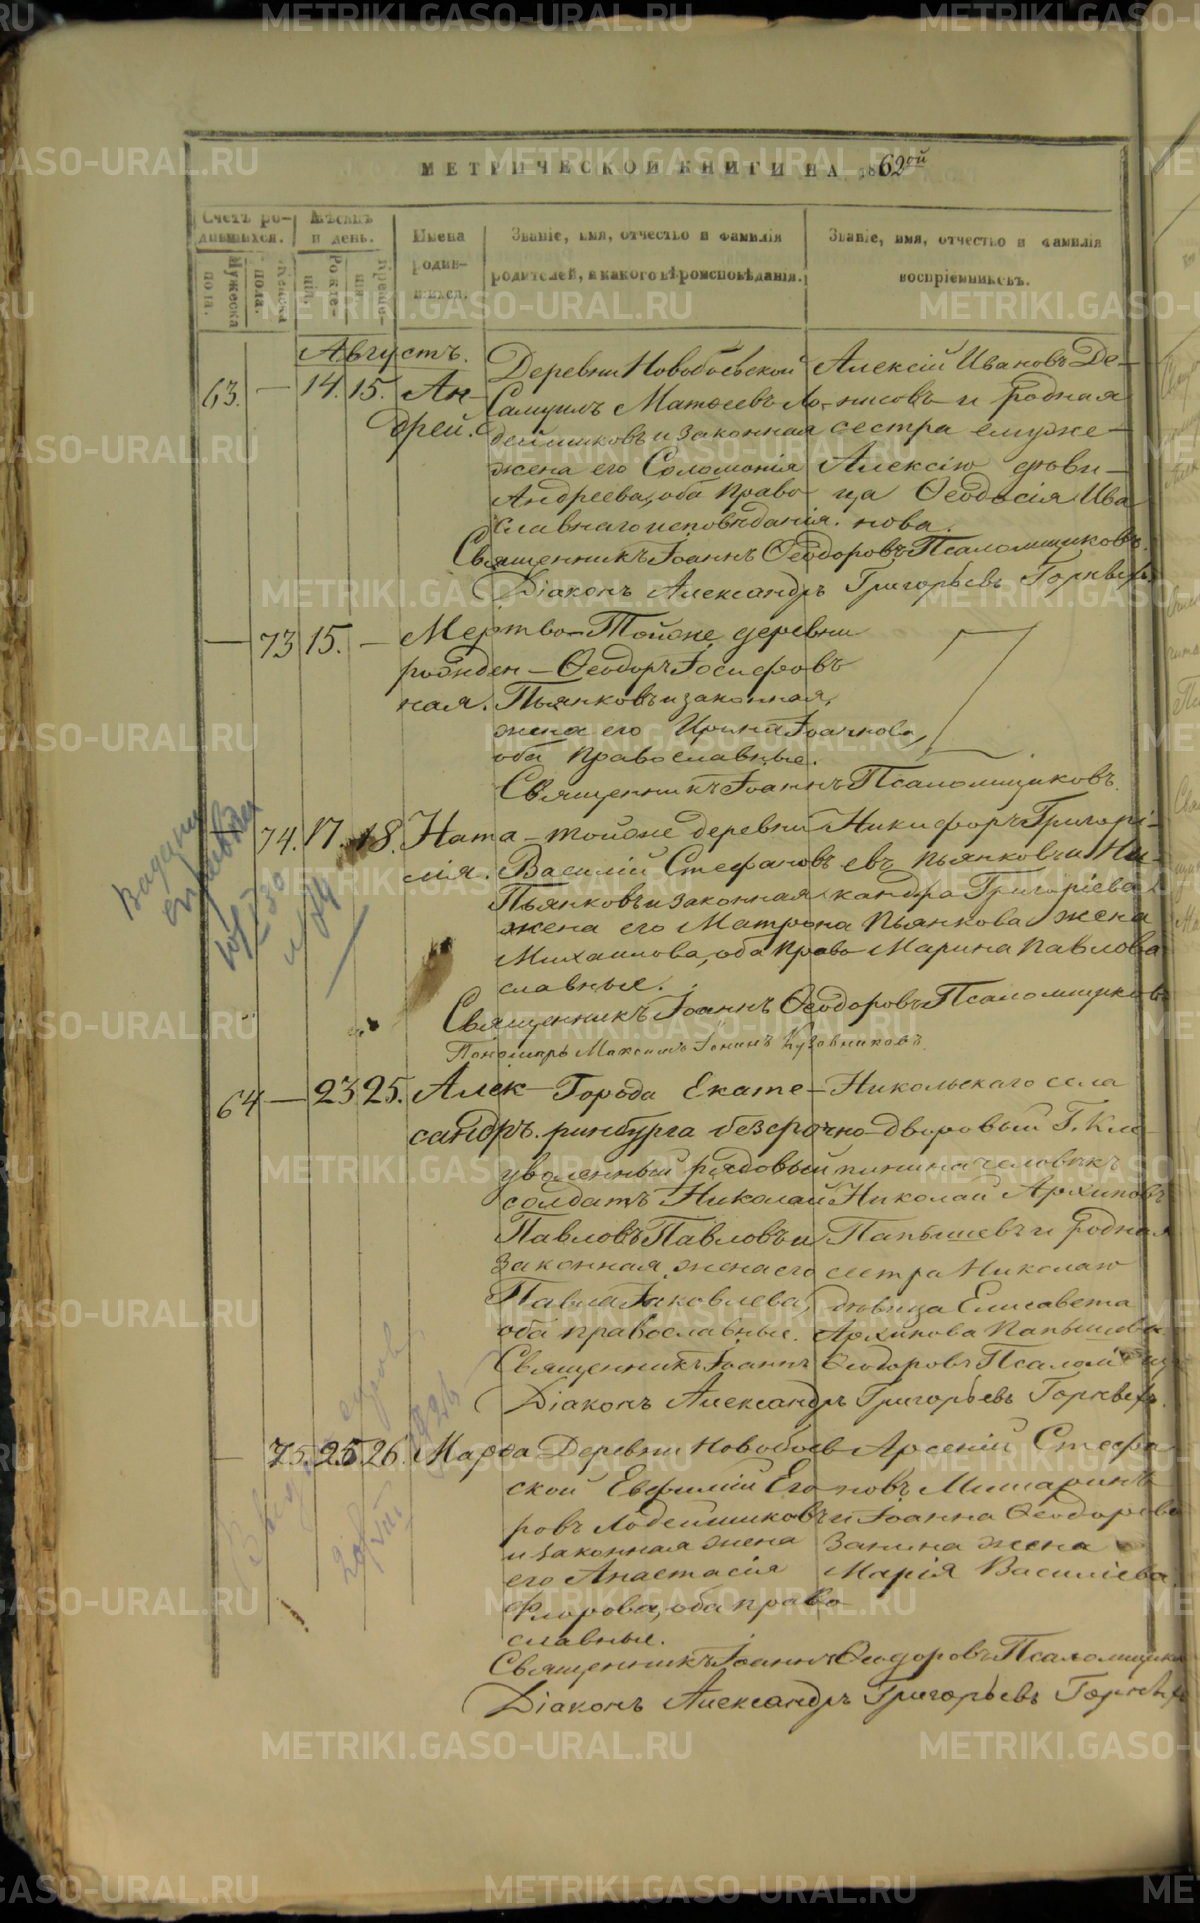 МЕТРИЧЕСКОЙ КНИГИ НА 1862ой
Счетъ ро-
дившихся.
Мѣсяцъ
и день.
Имена
родив-
шихся.
Званіе, имя, отчество и фамилія
родителей, и какого вѣроисповѣданія.
Званіе, имя, отчество и фамилія
воспріемниковъ.
Мужеска
пола.
Женска
пола.
Рожде-
нія.
Креще-
нія.
Августъ.
63. — 14. 15. Ан-
дрей.
Деревни Новобоевской
Самуилъ Матѳеевъ Ло-
дейщиковъ и законная
жена его Соломонія
Андреева, оба право-
славнаго исповѣданія.
Алексій Ивановъ Де-
нисовъ и родная
сестра ему же
Алексію дѣви-
ца Ѳеодосія Ива
нова.
Священникъ Іоаннъ Ѳеодоровъ Псаломщиковъ.
Діаконъ Александръ Григорьевъ
— 73 15. — Мертво-
рожден-
ная.
Тойже деревни
Ѳеодоръ Іосифовъ
Пьянковъ и законная
жена его Ирина Іоаннова,
оба православные.
Священникъ Іоаннъ Псаломщиковъ.
— 74. 17. 18. Ната-
лія.
тойже деревни
Василій Стефановъ
Пьянковъ и законная
жена его Матрона
Михаилова, оба право
славные.
Никифоръ Григорі-
евъ Пьянковъ и Ни-
кандра Григоріева
Пьянкова жена
Марина Павлова
Священникъ Іоаннъ Ѳеодоровъ Псаломщиковъ
Пономарь Максимъ Іонинъ Кузовниковъ
64 — 23 25. Алек-
сандръ.
Города Екате-
ринбурга безсрочно
уволенный рядовый
солдатъ Николай
Павловъ Павловъ и
законная жена его
Павла Іаковлева,
оба православные.
Никольскаго села
дворовый Г. Кло-
пинина человѣкъ
Николай Архиповъ
Папышевъ и родная
сестра Николаю
дѣвица Елисавета
Архипова Папышева
Священникъ Іоаннъ Ѳеодоровъ Псаломщи
Діаконъ Александръ Григорьевъ
— 75. 25 26. Марѳа
Деревни Новобоев-
ской Евфимій Его
ровъ Лодейщиковъ
и законная жена
его Анастасія
Флорова, оба право
славные.
Арсеній Стефа
новъ Мишаринъ
и Іоанна Ѳеодорова
Занина жена
Марія Василіева
Священникъ Іоаннъ Ѳеодоровъ Псаломщико
Діаконъ Александръ Григорьевъ
METRIKI.GASO-URAL.RU